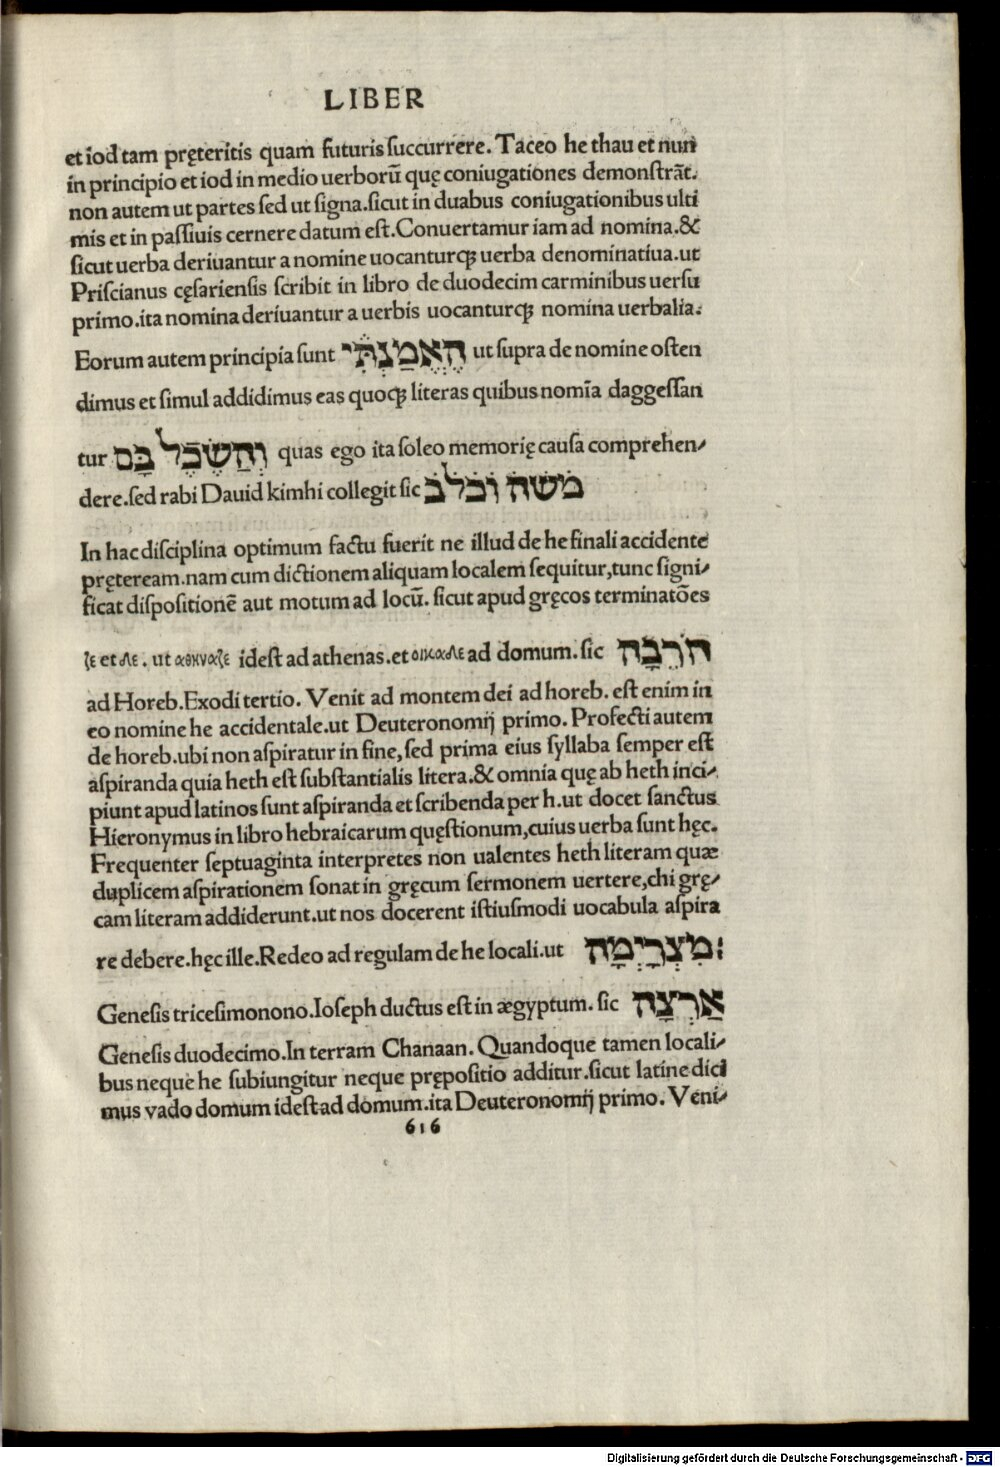 LIBER
et iod tam pręteritis quam futuris ſuccurrere. Taceo he thau et nun
in principio et iod in medio uerborū quę coniugationes demonſtrāt.
non autem ut partes ſed ut ſigna.ſicut in duabus coniugationibus ulti
mis et in paſſiuis cernere datum eſt.Conuertamur iam ad nomina.&
ſicut uerba deriuantur a nomine uocanturqꝫ uerba denominatiua.ut
Priſcianus cęſarienſis ſcribit in libro de duodecim carminibus uerſu
primo.ita nomina deriuantur a uerbis uocanturqꝫ nomina uerbalia.
Eorum autem principia ſunt הֶאֱמַנְתִּי ut ſupra de nomine oſten
dimus et ſimul addidimus eas quoqꝫ literas quibus nomīa daggeſſan
tur וְהַשְׂכֵּל בָּם quas ego ita ſoleo memorię cauſa comprehen⸗
dere.ſed rabi Dauid kimhi collegit ſic מֹשֶׁה וְכֹלֵב
In hac diſciplina optimum factu fuerit ne illud de he finali accidente
pręteream.nam cum dictionem aliquam localem ſequitur,tunc ſigni⸗
ficat diſpoſitionē aut motum ad locū. ſicut apud gręcos terminatōes
ζε et δε. ut αθηναζε ideſt ad athenas.et οικαδε ad domum. ſic חֹרֵבָה
ad Horeb.Exodi tertio. Venit ad montem dei ad horeb. eſt enim in
eo nomine he accidentale.ut Deuteronomij primo. Profecti autem
de horeb.ubi non aſpiratur in fine,ſed prima eius ſyllaba ſemper eſt
aſpiranda quia heth eſt ſubſtantialis litera.& omnia quę ab heth inci⸗
piunt apud latinos ſunt aſpiranda et ſcribenda per h.ut docet ſanctus
Hieronymus in libro hebraicarum quęſtionum,cuius uerba ſunt hęc.
Frequenter ſeptuaginta interpretes non ualentes heth literam quæ
duplicem aſpirationem ſonat in gręcum ſermonem uertere,chi grę⸗
cam literam addiderunt.ut nos docerent iſtiuſmodi uocabula aſpira
re debere.hęc ille.Redeo ad regulam de he locali.ut מִצְרָיְמָה׃
Geneſis triceſimonono.Ioſeph ductus eſt in ægyptum. ſic אַרְצָה
Geneſis duodecimo.In terram Chanaan. Quandoque tamen locali⸗
bus neque he ſubiungitur neque prępoſitio additur.ſicut latine dici
mus vado domum ideſt ad domum.ita Deuteronomij primo. Veni⸗
616
Digitalisierung gefördert durch die Deutsche Forschungsgemeinschaft - DFG